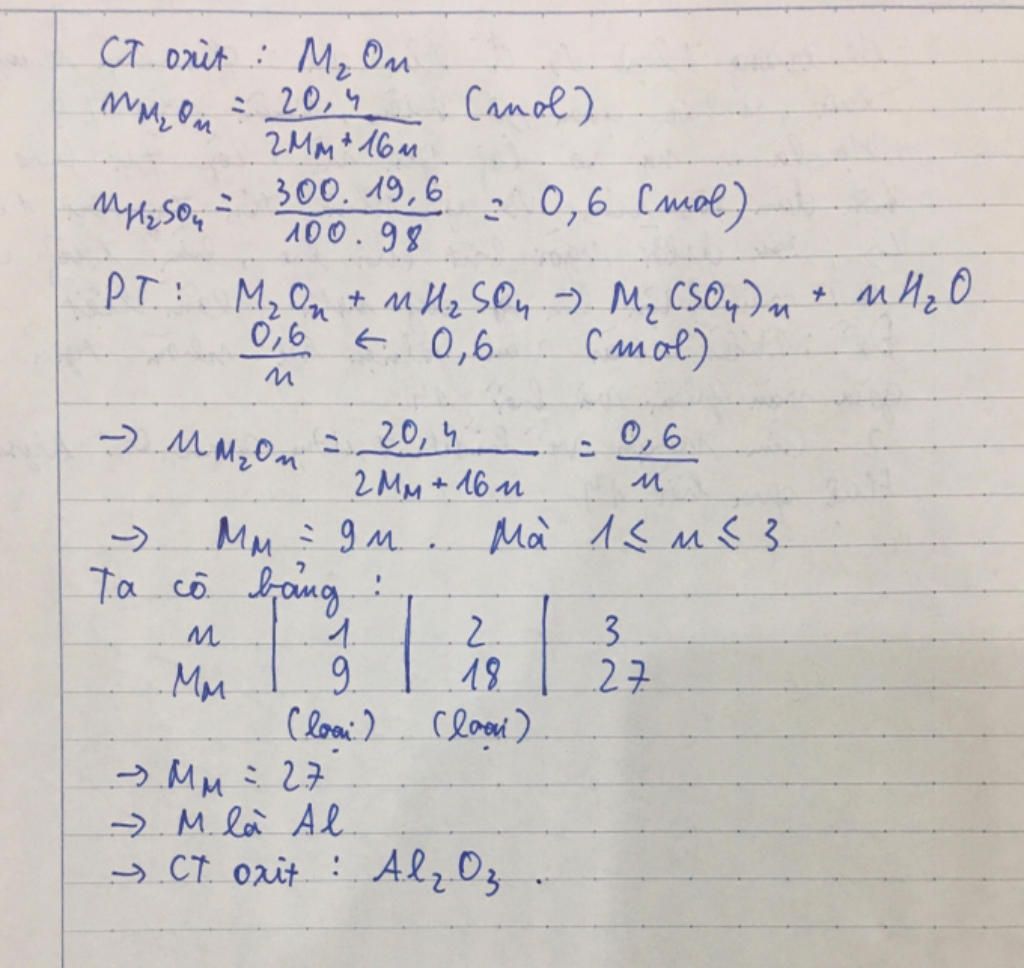 CT oxit : M₂Oₙ
n M₂Oₙ = 20,4 / (2Mᴍ + 16n) (mol)
n H₂SO₄ = 300. 19,6 / 100. 98 = 0,6 (mol)
PT : M₂Oₙ + nH₂SO₄ → M₂(SO₄)ₙ + nH₂O
0,6 / n ← 0,6 (mol)
→ n M₂Oₙ = 20,4 / (2Mᴍ + 16n) = 0,6 / n
→ Mᴍ = 9n . Mà 1 ≤ n ≤ 3
Ta có bảng :
n | 1 | 2 | 3
Mᴍ | 9 | 18 | 27
(loại) (loại)
→ Mᴍ = 27
→ M là Al
→ CT oxit : Al₂O₃ .